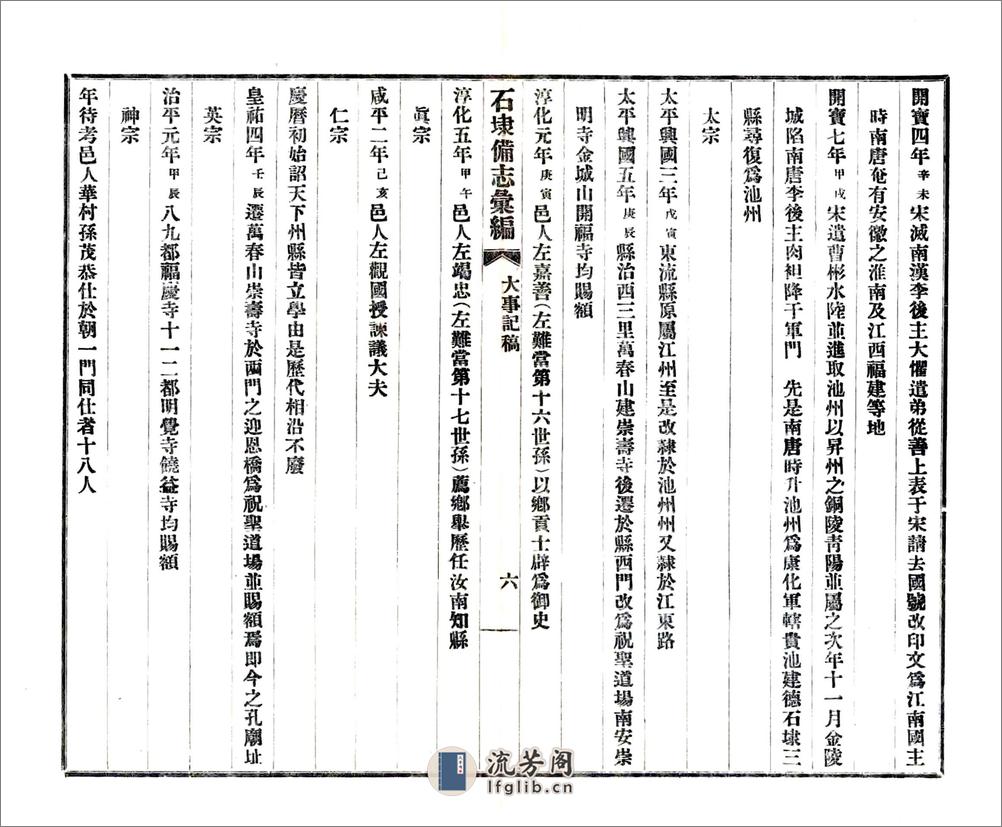 開寶四年辛未宋滅南漢李後主大懼遣弟從善上表于宋請去國號改印文爲江南國主
時南唐奄有安徽之淮南及江西福建等地
開寶七年甲戌宋遣曹彬水陸並進取池州以昇州之銅陵青陽並屬之次年十一月金陵
城陷南唐李後主肉袒降于軍門　先是南唐時升池州爲康化軍轄貴池建德石埭三
縣尋復爲池州
太宗
太平興國三年戊寅東流縣原屬江州至是改隸於池州州又隸於江東路
太平興國五年庚辰縣治西三里萬春山建崇壽寺後遷於縣西門改爲祝聖道場南安崇
明寺金城山開福寺均賜額
淳化元年庚寅邑人左嘉善（左難當第十六世孫）以鄉貢士辟爲御史
石埭備志彙編　大事記稿　六
淳化五年甲午邑人左竭忠（左難當第十七世孫）薦鄉舉歷任汝南知縣
眞宗
咸平二年己亥邑人左觀國授諫議大夫
仁宗
慶曆初始詔天下州縣皆立學由是歷代相沿不廢
皇祐四年壬辰遷萬春山崇壽寺於西門之迎恩橋爲祝聖道場並賜額焉即今之孔廟址
英宗
治平元年甲辰八九都福慶寺十一二都明覺寺饒益寺均賜額
神宗
年待考邑人華村孫茂恭仕於朝一門同仕者十八人
流芳阁
lfglib.cn